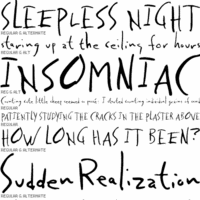 SLEEPLESS NIGHT
REGULAR & ALTERNATE
staring up at the ceiling for hours
REGULAR & ALT
INSOMNIAC
REG & ALT
Counting cute little sheep seemed a good. I started counting individual grains of sand
REGULAR
PATIENTLY STUDYING THE CRACKS IN THE PLASTER ABOVE
REGULAR
HOW LONG HAS IT BEEN?
REGULAR & ALTERNATE
Sudden Realization
REGULAR & ALTERNATE